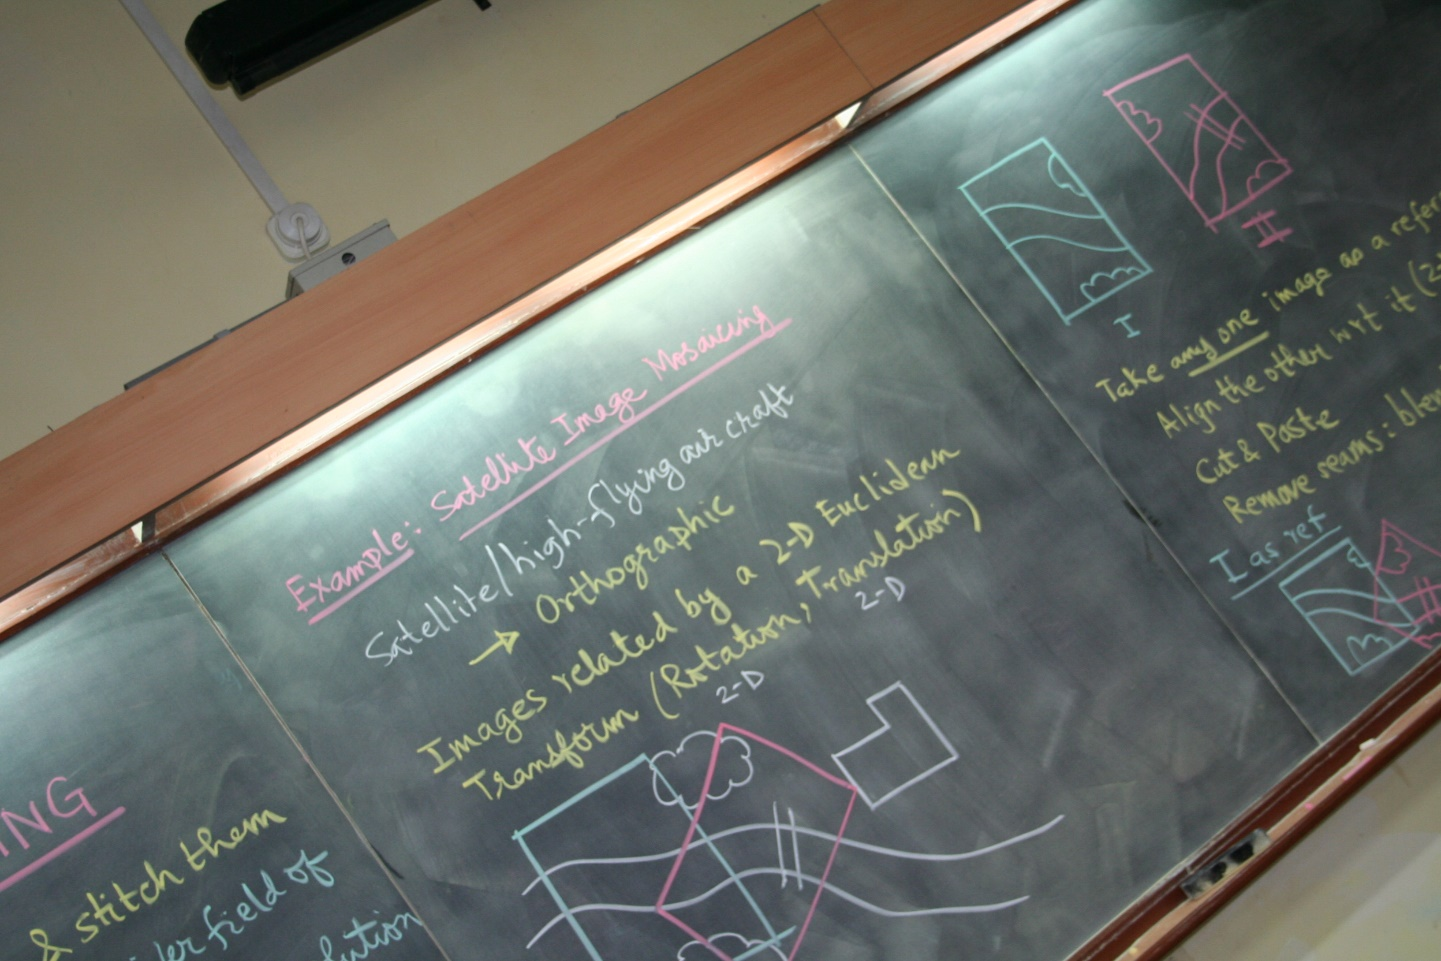 NG
& stitch them
field of
Example: Satellite Image Mosaicing
Satellite/high-flying air craft
→ Orthographic
Images related by a 2-D Euclidean
Transform (Rotation, Translation)
2-D 2-D
I
II
Take any one image as a refer
Align the other wrt it (2-
Cut & Paste
Remove seams: blen
I as ref